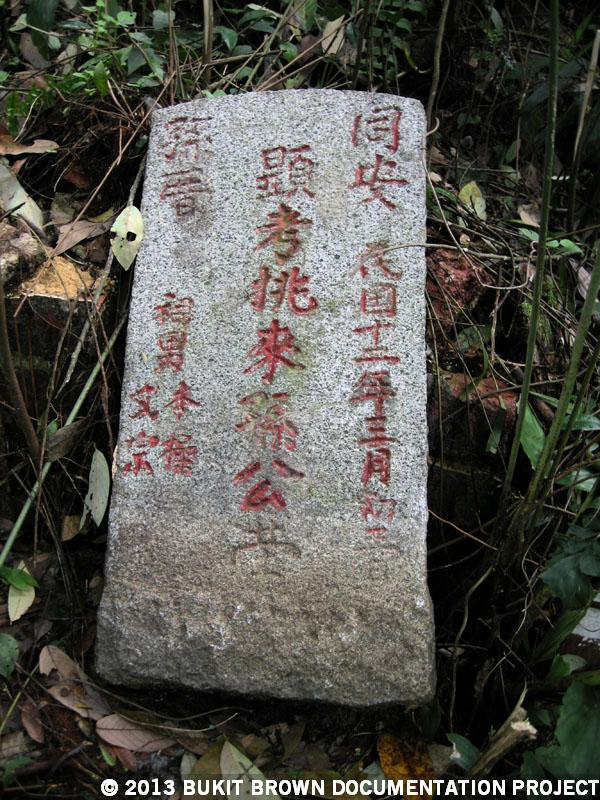 同安
民国十二年十三月初
顯考挑來孫公墓
孫厝
男 本
文宗
© 2013 BUKIT BROWN DOCUMENTATION PROJECT